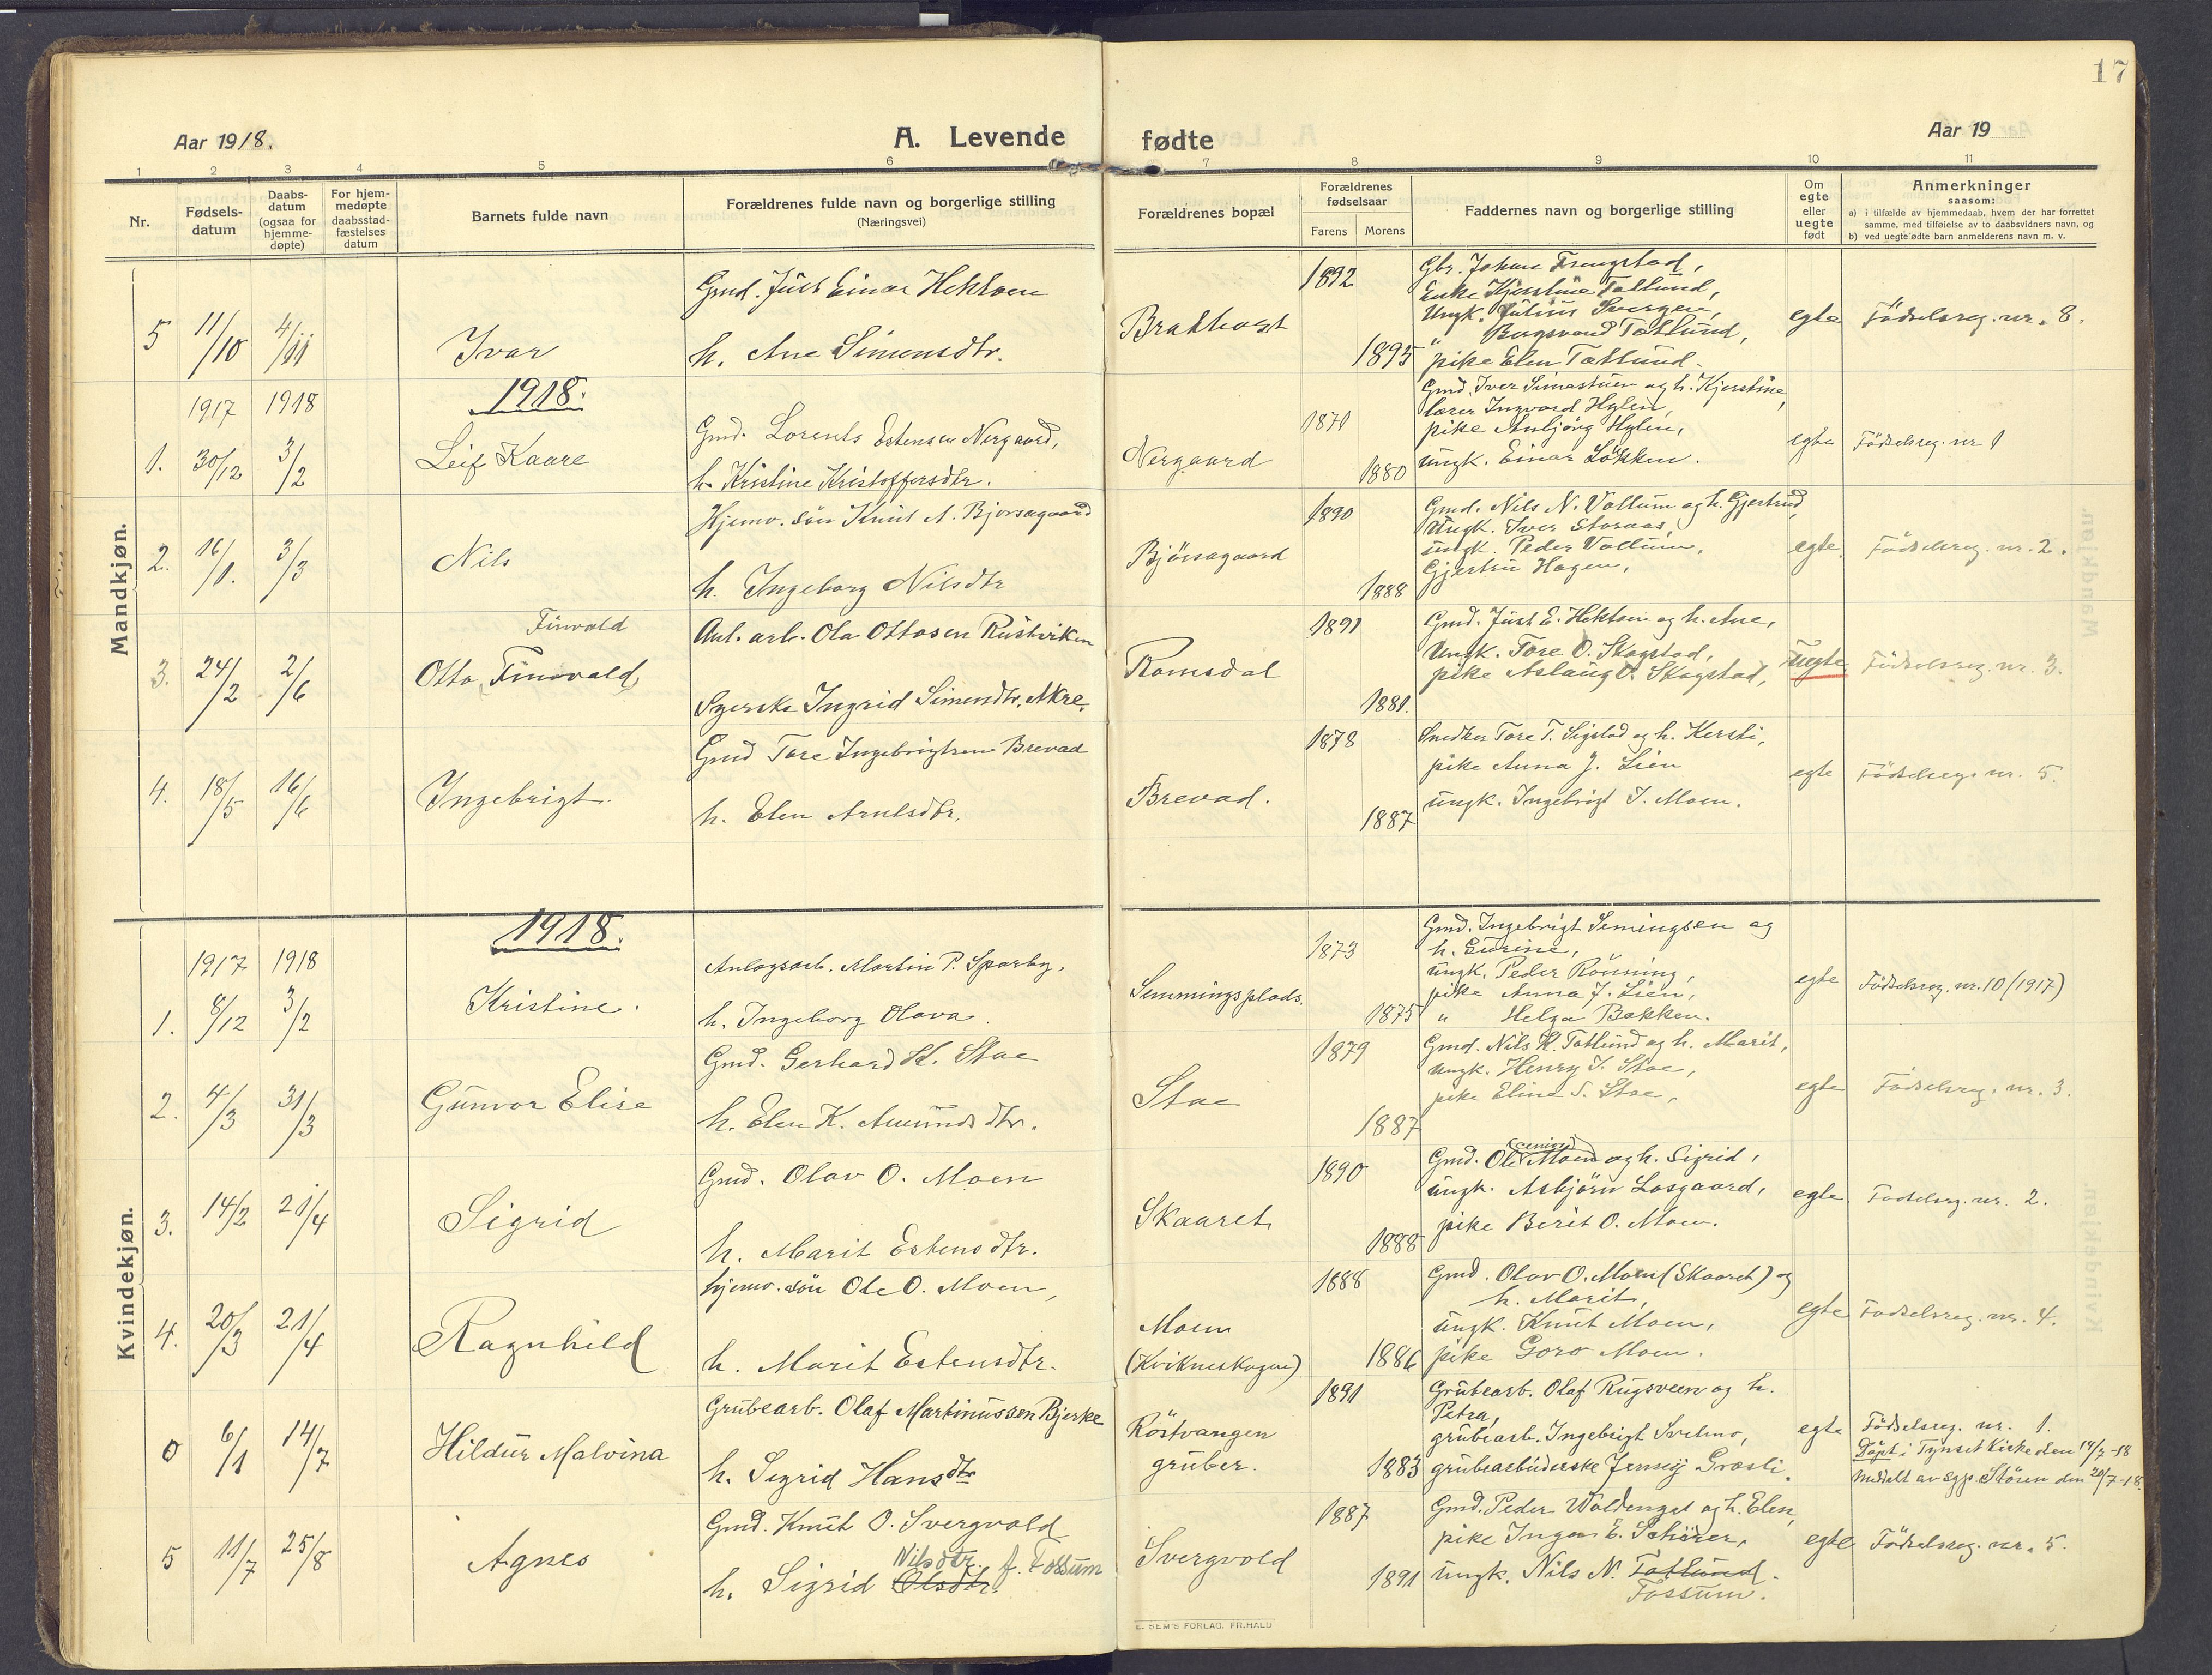 17
Aar 1918.
A. Levende fødte
Aar 19
1 2 3 4 5 6 7 8 9 10 11
Nr.
Fødsels-
datum
Daabs-
datum
(ogsaa for
hjemme-
døpte)
For hjem-
medøpte
daabsstad-
fæstelses
datum
Barnets fulde navn
Forældrenes fulde navn og borgerlige stilling
(Næringsvei)
Forældrenes bopæl
Forældrenes
fødselsaar
Farens
Morens
Faddernes navn og borgerlige stilling
Om
egte
eller
uegte
født
Anmerkninger
saasom:
a) i tilfælde av hjemmedaab, hvem der har forrettet
samme, med tilføielse av to daabsvidners navn, og
b) ved uegte fødte barn anmelderens navn m. v.
Mandkjøn.
5 11/10 4/11 Ivar
Gmd. Just Einar Hektoen
h. Ane Simensdtr.
1892
1895
Gbr. Johan
Enke Kjerstine Tallund,
Ungk. Julius
" Tallund,
pike Elen Tallund.
egte Fødselsreg. nr. 8.
1917 1918
1918.
1. 30/12 3/2 Leif Kaare
Gmd. Lorents Estensen Nergaard,
h. Kristine Kristoffersdtr.
Nergaard
1871
1880
Gmd. Iver Simastuen og h. Kjerstine,
lærer Ingvard Hylen,
pike Anbjørg Hylen,
ungk. Einar Løkken.
egte Fødselsreg. nr 1
2. 16/1. 3/3 Nils
Hjemv. søn Knut A. Bjørsagaard
h. Ingeborg Nilsdtr
Bjørsagaard
1890
1888
Gmd. Nils N. Vollum og h. Gjertrud,
Ungk. Iver Storaas,
ungk. Peder Vollum,
Gjertru Hagen.
egte. Fødselsreg. nr. 2.
Finvald
3. 24/2 2/6 Otto (Finvald)
Anl. arb. Ola Ottosen Rustviken
Syerske Ingrid Simendtr. Akre.
Romsdal
1891
1881.
Gmd. Just E. Hektoen og h. Ane,
Ungk. Tore O. Skogstad,
pike Aslaug O. Skogstad,
uegte Fødselsreg. nr. 3.
4. 18/5 16/6 Ingebrigt.
Gmd Tore Ingebrigtsen Brevad
h. Elen Arntsdtr.
Brevad.
1878
1887
Snedker Tore T. Sigstad og h. Kersti,
pike Anna J. Lien
ungk. Ingebrigt I. Moen.
egte Fødselsreg. nr. 5.
Kvindekjøn.
1918.
1917 1918
1. 8/12 3/2 Kristine.
Anlægsarb. Martin P. Sparby,
h. Ingeborg Olava.
Semmingsplads.
1873
1875
Gmd. Ingebrigt Semingsen og
h. Eurine,
ungk. Peder Rønning,
pike Anna J. Lien,
" Helga Bakken.
egte Fødselsreg. nr. 10 (1917)
2. 4/3 31/3 Gunvor Elise
Gmd. Gerhard H. Stae
h. Elen K. Amundsdtr.
Stae
1879
1887
Gmd. Nils H. Tatlund og h. Marit,
ungk. Henry J. Stae,
pike Eline S. Stae,
egte Fødselsreg. nr. 3.
3. 14/2 21/4 Sigrid
Gmd. Olav O. Moen
h. Marit Estensdtr.
Skaaret
1890
1888
(senior)
Gmd. Ole Moen og h. Sigrid,
ungk. Asbjørn Losgaard,
pike Berit O. Moen.
egte Fødselsreg. nr. 2.
4. 20/3 21/4 Ragnhild
hjemv. søn Ole O. Moen,
h. Marit Estensdtr.
Moen
(Kvikneskogen)
1888
1886
Gmd. Olav O. Moen (Skaaret) og
h. Marit,
ungk. Knut Moen,
pike Goro Moen.
egte Fødselsreg. nr. 4.
0 6/1 14/7 Hildur Malvina
Grubearb. Olaf Martinussen Bjerke
h. Sigrid Hansdtr
Røstvangen
gruber.
1891
1883
Grubearb. Olaf Rugsveen og h.
Petra,
grubearb. Ingebrigt
grubearbiderske Jenny Græsli.
egte Fødselsreg. nr. 1.
Døpt i Tynset Kirke den 14/7-18
Meddelt av sgp. Støren den 20/7-18.
5 11/7 25/8 Agnes
Gmd. Knut O. Svergvold
Nilsdtr. f. Fossum
h. Sigrid Olsdtr.
Svergvold
1887
1891
Gmd. Peder Woldenget og h. Elen,
pike Inga E. Schärer,
ungk. Nils N. Tatlund.
Fossum.
egte Fødselsreg. nr. 5.
E. SEM'S FORLAG. FR.HALD